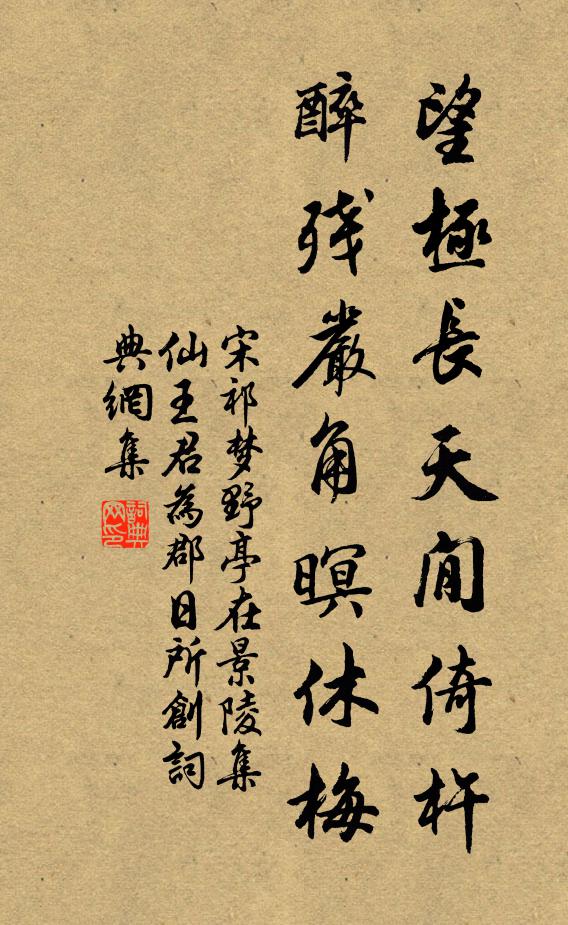 望極長天閒倚杵
醉殘嚴角暝休梅
宋祁梦野亭在景陵集
仙王君為郡日所創詞
典網集
詞典網印